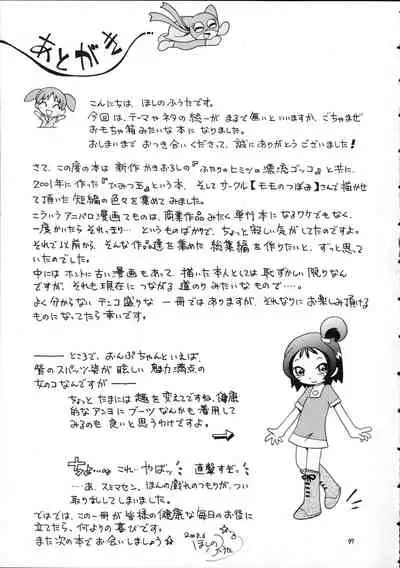 あとがき
こんにちは、ほしのふうたです。
今回は、テーマやネタの統一がまるで無いといいますが、ごちゃまぜ
おもちゃ箱みたいな本になりました。
おしまいまでおつき合いくださって、誠にありがとうございました！
さて、この度の本は新作かきおろしの『ふたりのヒミツの漂流ゴッコ』と共に、
2001年に作った『ひみつ玉』という本、そしてサークル【モモのつぼみ】さんで描かせ
て頂いた短編の色々を集めてみました。
こういうアニパロ漫画てものは、商業作品みたく単行本になるワケでもなく、
一度かいたらそれっきり…というものばかりで、ちょっと寂しい気がしてたのですよ。
それで以前から、そんな作品達を集めた総集編を作りたいと、ずっと思って
いたのでした。
中にはホントに古い漫画もあって、描いた本人としては恥ずかしい限りなん
ですが、それも現在につながる道のりみたいなもので…。
よく分からないテンコ盛りな一冊ではありますが、それなりにお楽しみ頂ける
ものになってたら幸いです。
ところで、おんぷちゃんといえば、
紫のスパッツ姿が眩しい魅力満点
な女のコなんですが
ちょっとたまには趣を変えてですね、健康
的なアンヨにブーツなんかも着用して
みるのも良いと思うわけですよ。
ちょ…のこれ…やばッ直撃すぎッ
…あ、スミマセン、ほんの戯れのつもりが、つい
取り乱してしまいました。
ではでは、この一冊が皆様の健康な毎日のお役に
立てたら、何よりの喜びです。
また次の本でお会いしましょう☆
2003.6
ほしの
ふうた
97